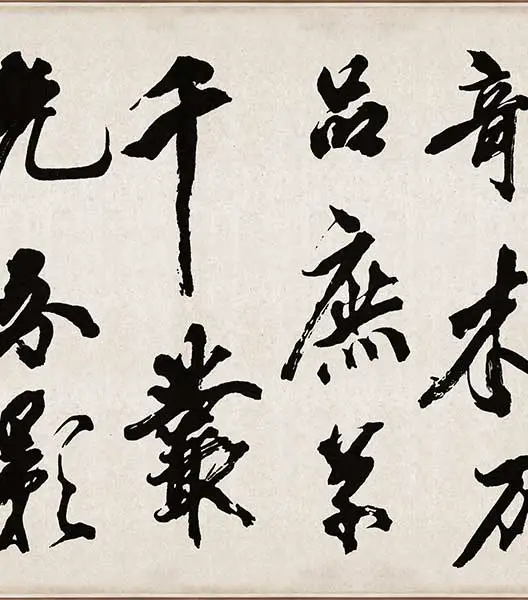 竒木万
品庶草
千叢
光分影